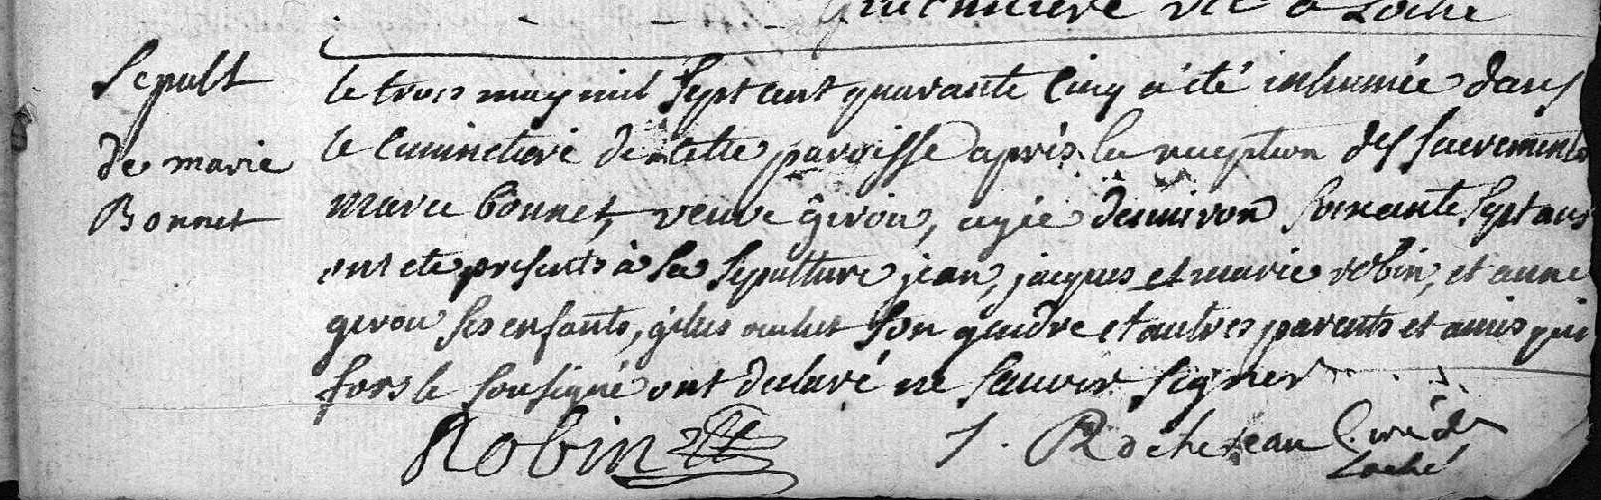 vic à Loché
Sepult
de marie
Bonnet
le trois may mil Sept cent quarante Cinq a été inhumée dans
le Cimmetiere de cette paroisse après la reception des sacrements
marie bonnet, veuve girou, agée d'environ soixante Sept ans
ont ete presents à sa sepulture jean, jacques et marie robin, et anne
girou ses enfants, gilles son gendre et autres parents et amis qui
fors le sousigné ont declaré ne scavoir signer
Robin
J. Rochereau Curé de
Loché